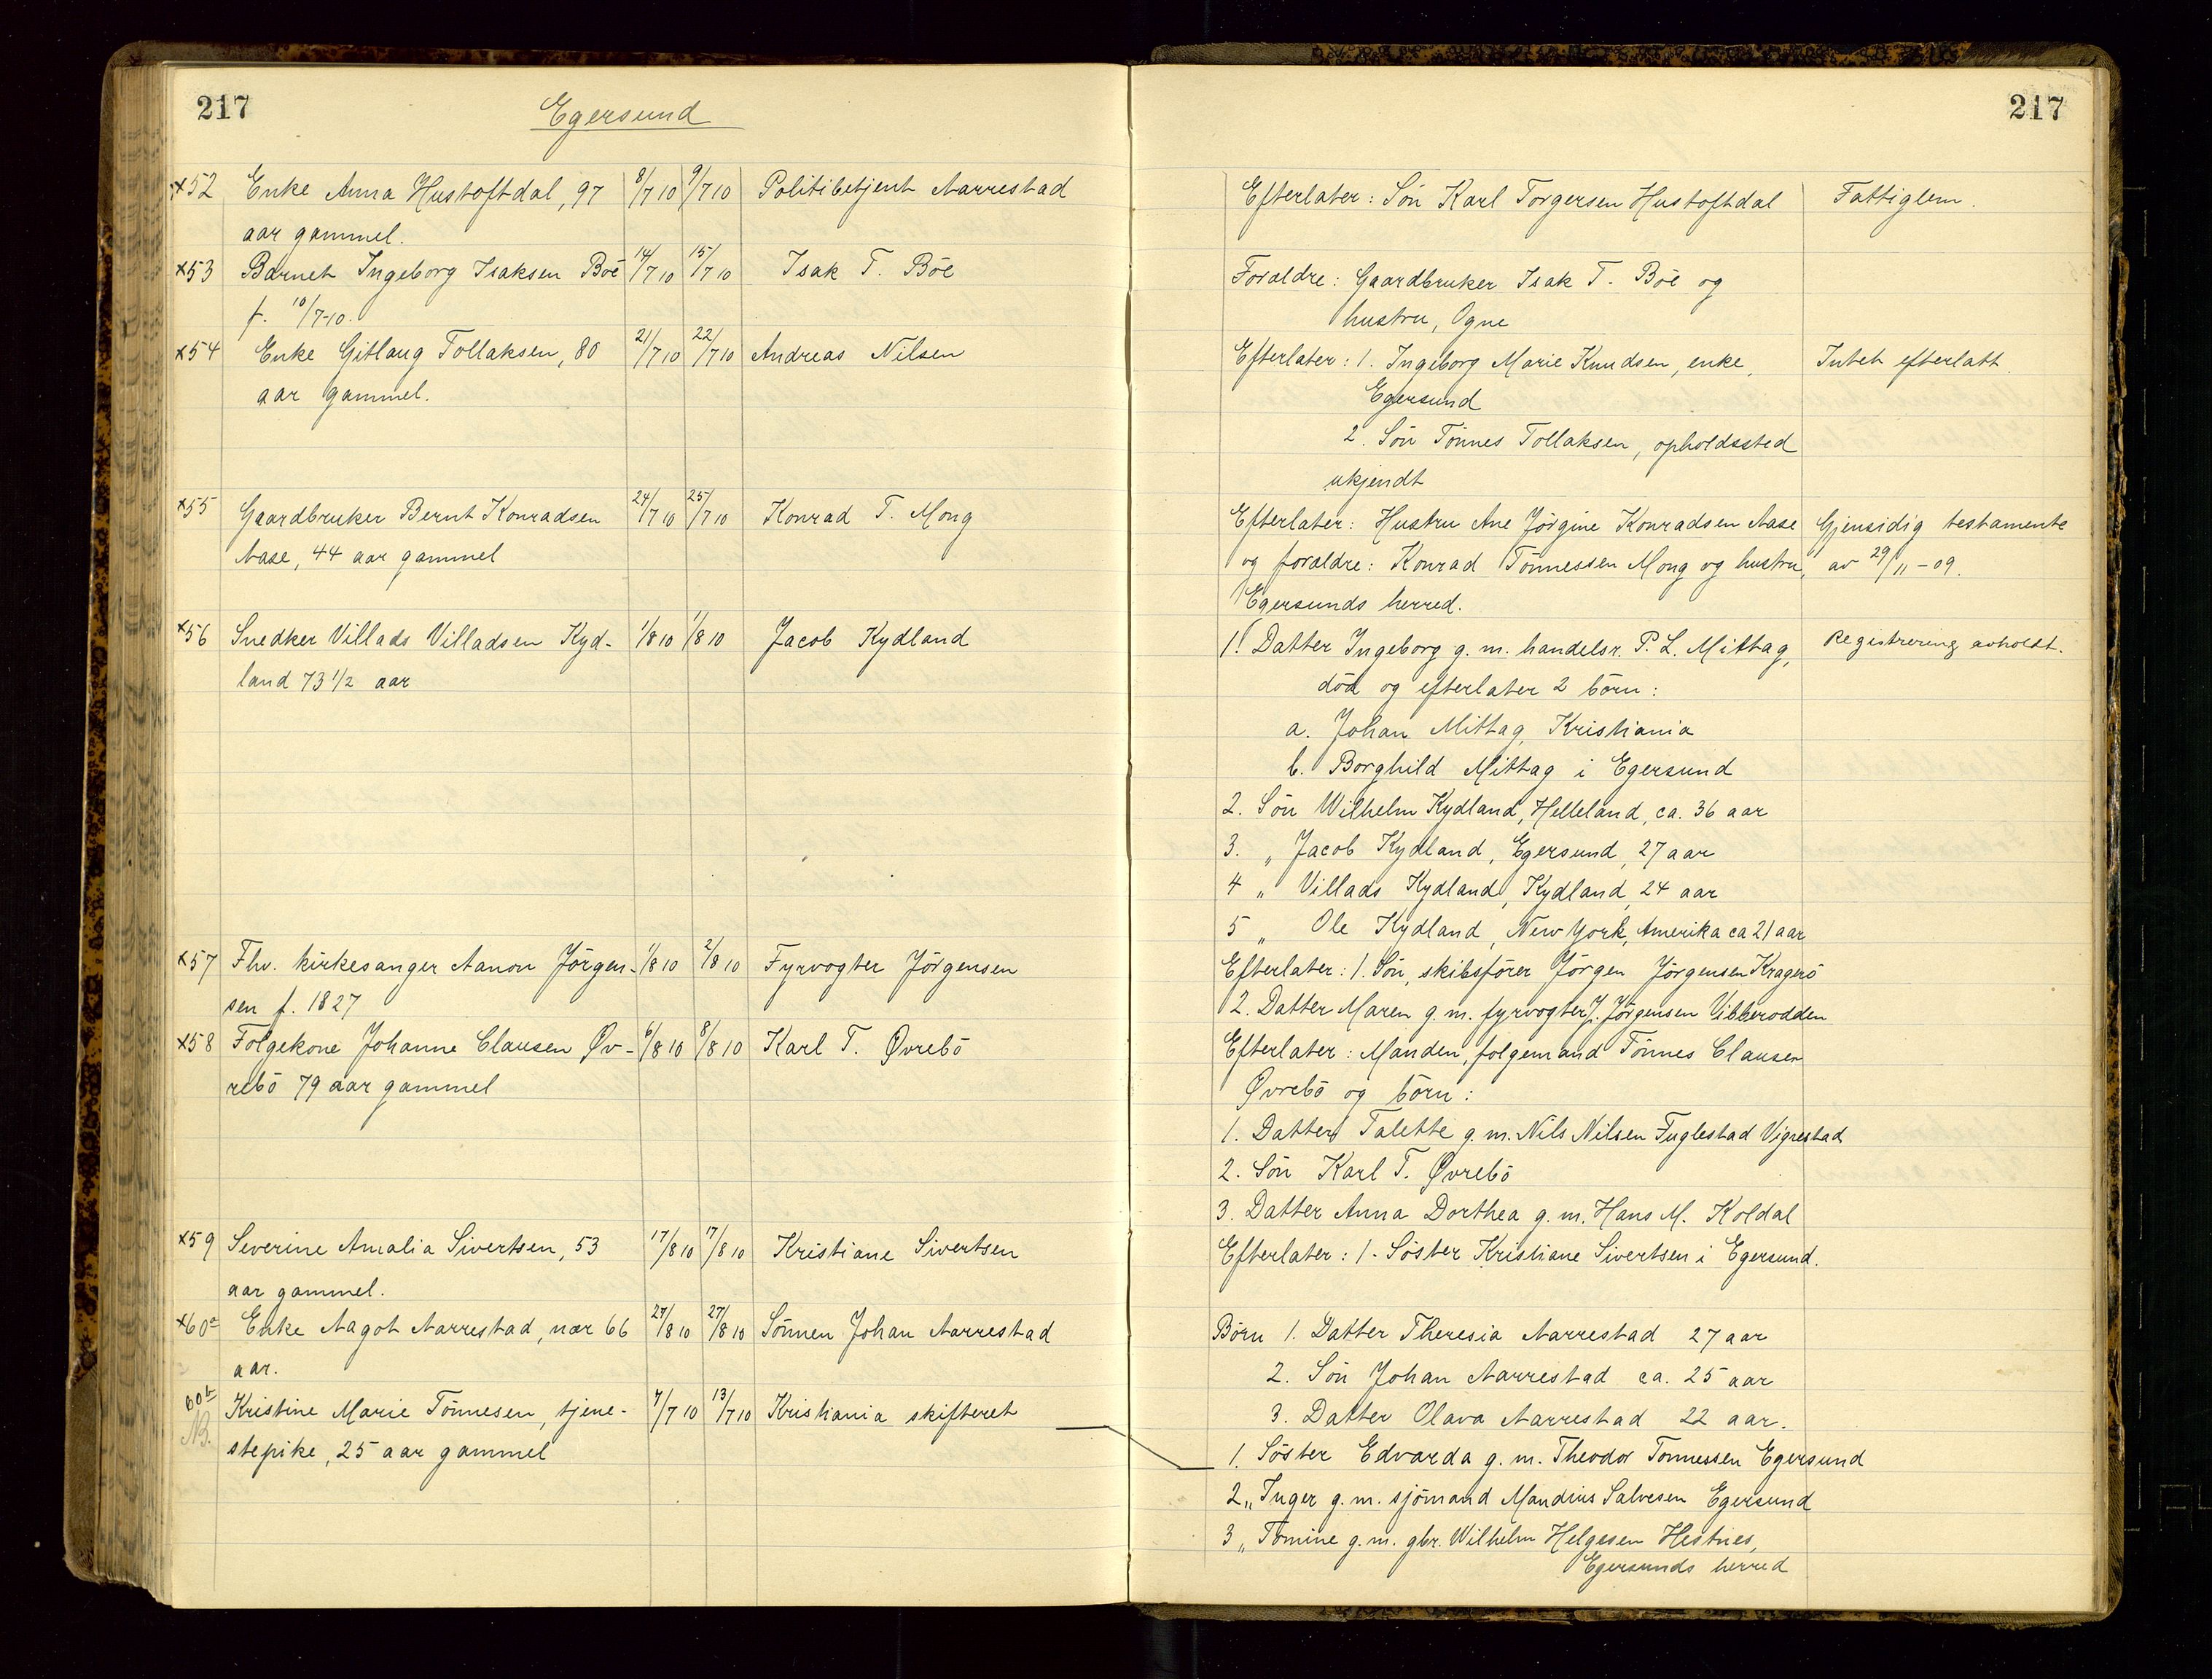 217
Egersund
x52 Enke Anna Hustoftdal, 97 8/7 10 9/7 10 Politibetjent Aarrestad
aar gammel.
x53 Barnet Ingeborg Isaksen Böe 14/7 10 15/7 10 Isak T. Böe
f. 10/7-10.
x54 Enke Gitlaug Tollaksen, 80 21/7 10 22/7 10 Andreas Nilsen
aar gammel.
x55 Gaardbruker Bernt Konradsen 24/7 10 25/7 10 Konrad T. Mong
Aase, 44 aar gammel
x56 Snedker Villads Villadsen Kyd- 1/8 10 1/8 10 Jacob Kydland
land 73 1/2 aar
x57 Fhv. kirkesanger Aanon Jörgen- 1/8 10 2/8 10 Fyrvogter Jörgensen
sen f. 1827
x58 Folgekone Johanne Clausen Øv- 6/8 10 8/8 10 Karl T. Øvrebö
rebö 79 aar gammel
x59 Severine Amalia Sivertsen, 53 17/8 10 17/8 10 Kristiane Sivertsen
aar gammel.
x60a Enke Aagot Aarrestad, nær 66 27/8 10 27/8 10 Sönnen Johan Aarrestad
aar.
60b Kristine Marie Tönnesen, tjene- 7/7 10 13/7 10 Kristiania skifteret
NB. stepike, 25 aar gammel
217
Efterlater: Sön Karl Torgersen Hustoftdal Fattiglem.
Foraldre: Gaardbruker Isak T. Böe og
hustru, Ogne
Efterlater: 1. Ingeborg Marie Knudsen, enke, Intet efterlatt.
Egersund
2. Sön Tönnes Tollaksen, opholdssted
ukjendt
Efterlater: Hustru Ane Jörgine Konradsen Aase Gjensidig testamente
og foraldre: Konrad Tönnessen Mong og hustru, av 29/11-09.
Egersunds herred.
1. Datter Ingeborg g. m. handelsr. P. L. Mittag, Registrering avholdt.
död og efterlater 2 börn:
a. Johan Mittag, Kristiania
b. Borghild Mittag i Egersund
2. Sön Wilhelm Kydland, Helleland, ca. 36 aar
3. „ Jacob Kydland, Egersund, 27 aar
4 „ Villads Kydland, Kydland, 24 aar
5 „ Ole Kydland, New York, Amerika ca 21 aar
Efterlater: 1. Sön, skibsförer Jörgen Jörgensen Kragerö
2. Datter Maren g. m. fyrvogter J. Jörgensen Vibberodden
Efterlater: Manden, folgemand Tönnes Clausen
Øvrebö og börn:
1. Datter Talette g. m. Nils Nilsen Fuglestad Vigrestad
2. Sön Karl T. Øvrebö
3. Datter Anna Dorthea g. m. Hans M. Koldal
Efterlater: 1. Söster Kristiane Sivertsen i Egersund.
Börn 1. Datter Theresia Aarrestad 27 aar
2. Sön Johan Aarrestad ca. 25 aar
3. Datter Olava Aarrestad 22 aar.
1. Söster Edvarda g. m. Theodor Tonnessen Egersund
2 „ Inger g. m. sjömand Mandius Salvesen Egersund
3 „ Tomine g. m. gbr. Wilhelm Helgesen Hestnes,
Egersunds herred